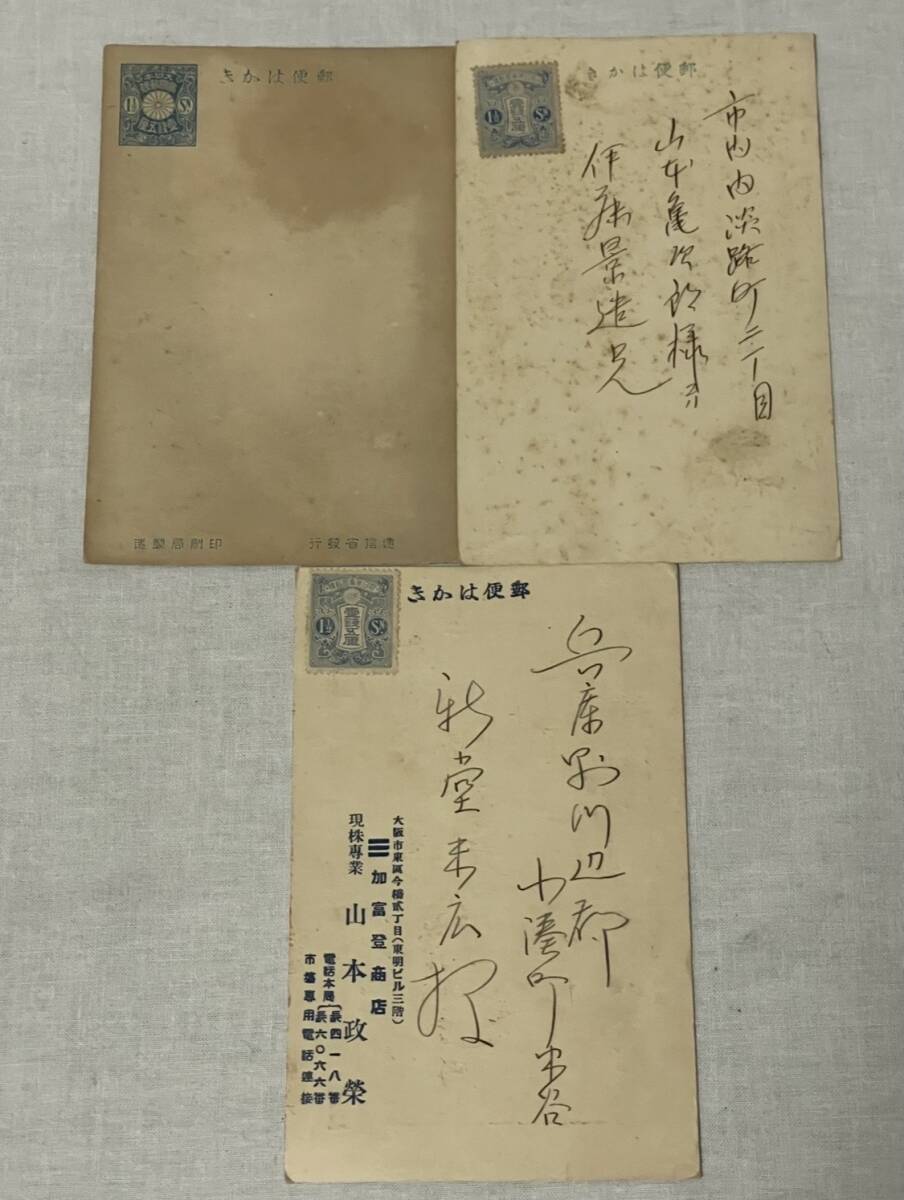 郵便はかき
大日本
1½ Sn
壹錢五厘
逓信省發行
印刷局製造
郵便はかき
1½ Sn
壹錢五厘
市内内淡路町二丁目
山本亀次郎様方
伊藤景造兄
郵便はかき
1½ Sn
壹錢五厘
兵庫県川辺郡
小濱町米谷
新堂末広様
大阪市東區今橋貳丁目(東明ビル三階)
三 加富登商店
現株専業 山本政榮
電話本局 長四一八番
長六〇六六番
市場専用電話連接